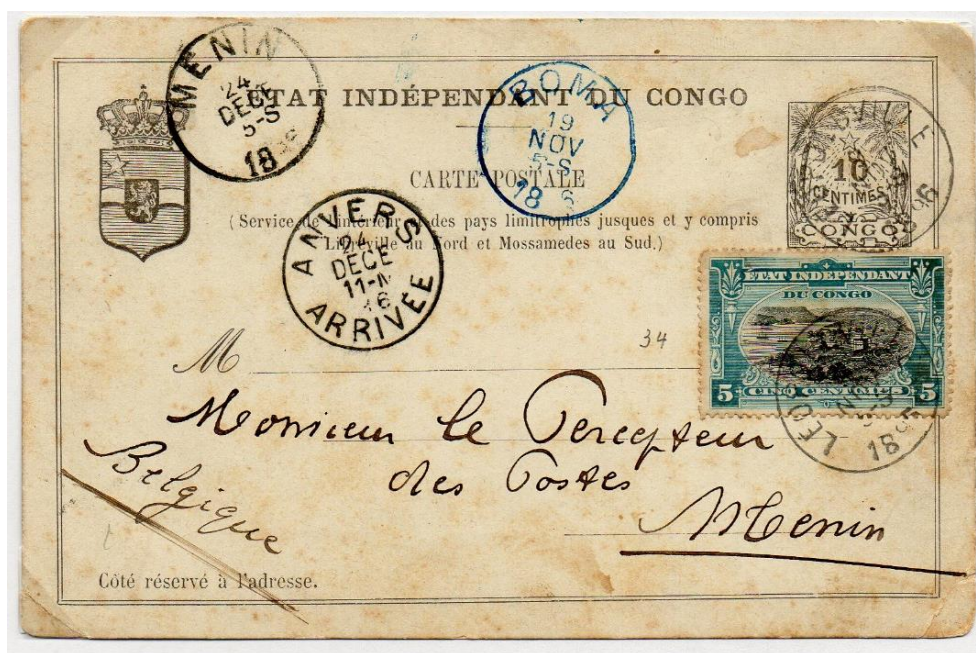 MENIN
24
DECE
5-S
18
ÉTAT INDÉPENDANT DU CONGO
BOMA
19
NOV
5-S
18 6
CARTE POSTALE
10
CENTIMES
CONGO
(Service de l'intérieur et des pays limitrophes jusques et y compris
Libreville au Nord et Mossamedes au Sud.)
ANVERS
24
DECE
11-M
96
ARRIVÉE
ÉTAT INDÉPENDANT
DU CONGO
5 CINQ CENTIMES 5
LEO
18
34
M
Monsieur le Percepteur
des Postes
Menin
Belgique
Côté réservé à l'adresse.